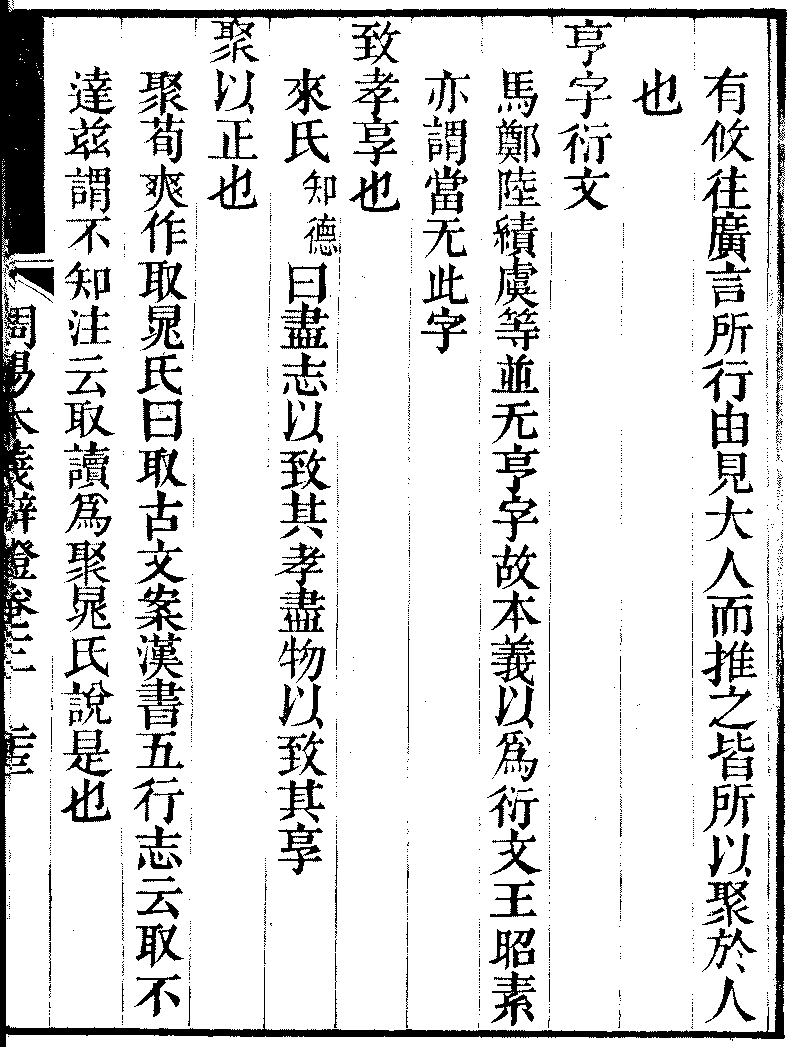 有攸往廣言所行由見大人而推之皆所以聚於人
也
亨字衍文
馬鄭陸績虞等並无亨字故本義以爲衍文王昭素
亦謂當无此字
致孝享也
來氏知德曰盡志以致其孝盡物以致其享
聚以正也
聚荀爽作取晁氏曰取古文案漢書五行志云取不
達兹謂不知注云取讀爲聚晁氏說是也
周易本義辯證卷三